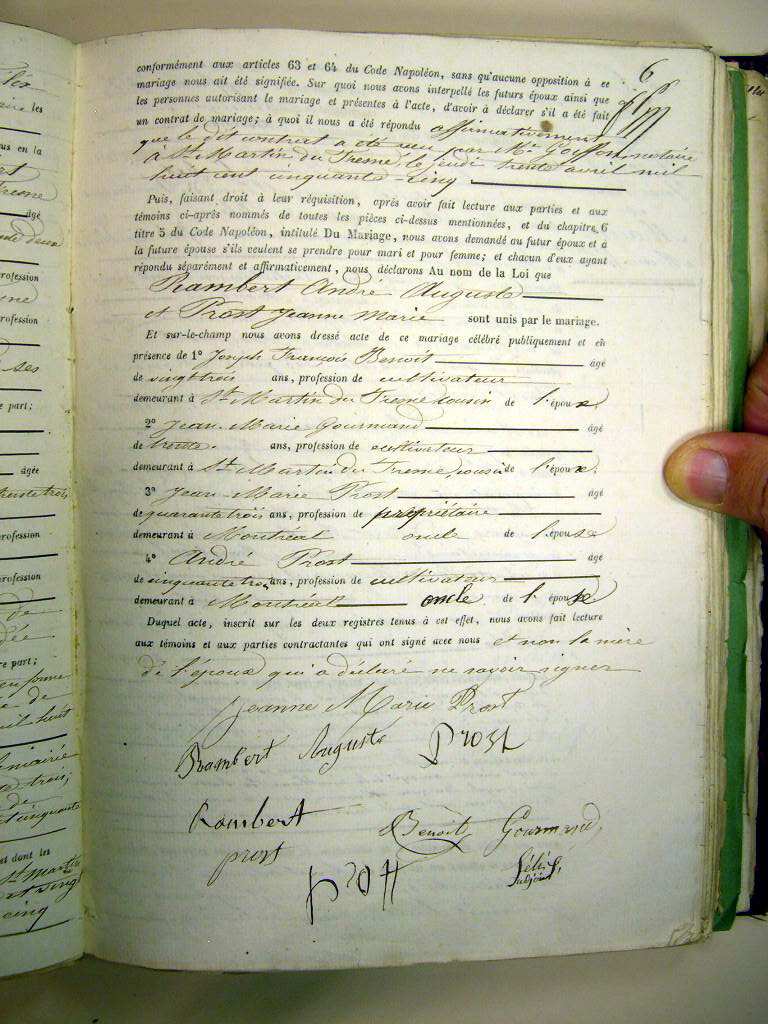 6
conformément aux articles 63 et 64 du Code Napoléon, sans qu'aucune opposition à ce
mariage nous ait été signifiée. Sur quoi nous avons interpellé les futurs époux ainsi que
les personnes autorisant le mariage et présentes à l'acte, d'avoir à déclarer s'il a été fait
un contrat de mariage; à quoi il nous a été répondu affirmativement
que le dit contrat a été reçu par Me notaire
à St Martin du Fresne le jeudi trente avril mil
huit cent cinquante-cinq
Puis, faisant droit à leur réquisition, après avoir fait lecture aux parties et aux
témoins ci-après nommés de toutes les pièces ci-dessus mentionnées, et du chapitre 6
titre 5 du Code Napoléon, intitulé Du Mariage, nous avons demandé au futur époux et à
la future épouse s'ils veulent se prendre pour mari et pour femme; et chacun d'eux ayant
répondu séparément et affirmativement, nous déclarons Au nom de la Loi que
Rambert André Auguste
et Prost Jeanne Marie sont unis par le mariage.
Et sur-le-champ nous avons dressé acte de ce mariage célébré publiquement et en
présence de 1° Joseph François Benoit âgé
de vingt trois ans, profession de cultivateur
demeurant à St Martin du Fresne cousin de l'époux
2° Jean-Marie Gourmand âgé
de trente ans, profession de cultivateur
demeurant à St Martin du Fresne cousin de l'époux.
3° Jean-Marie Prost âgé
de quarante trois ans, profession de propriétaire
demeurant à Montréal oncle de l'épouse
4° André Prost âgé
de cinquante trois ans, profession de cultivateur
demeurant à Montréal oncle de l'épouse
Duquel acte, inscrit sur les deux registres tenus à cet effet, nous avons fait lecture
aux témoins et aux parties contractantes qui ont signé avec nous et non la mère
de l'époux qui a déclaré ne savoir signer
Jeanne Marie Prost
Rambert Auguste Prost
Rambert Benoit Gourmand
prost
Prost